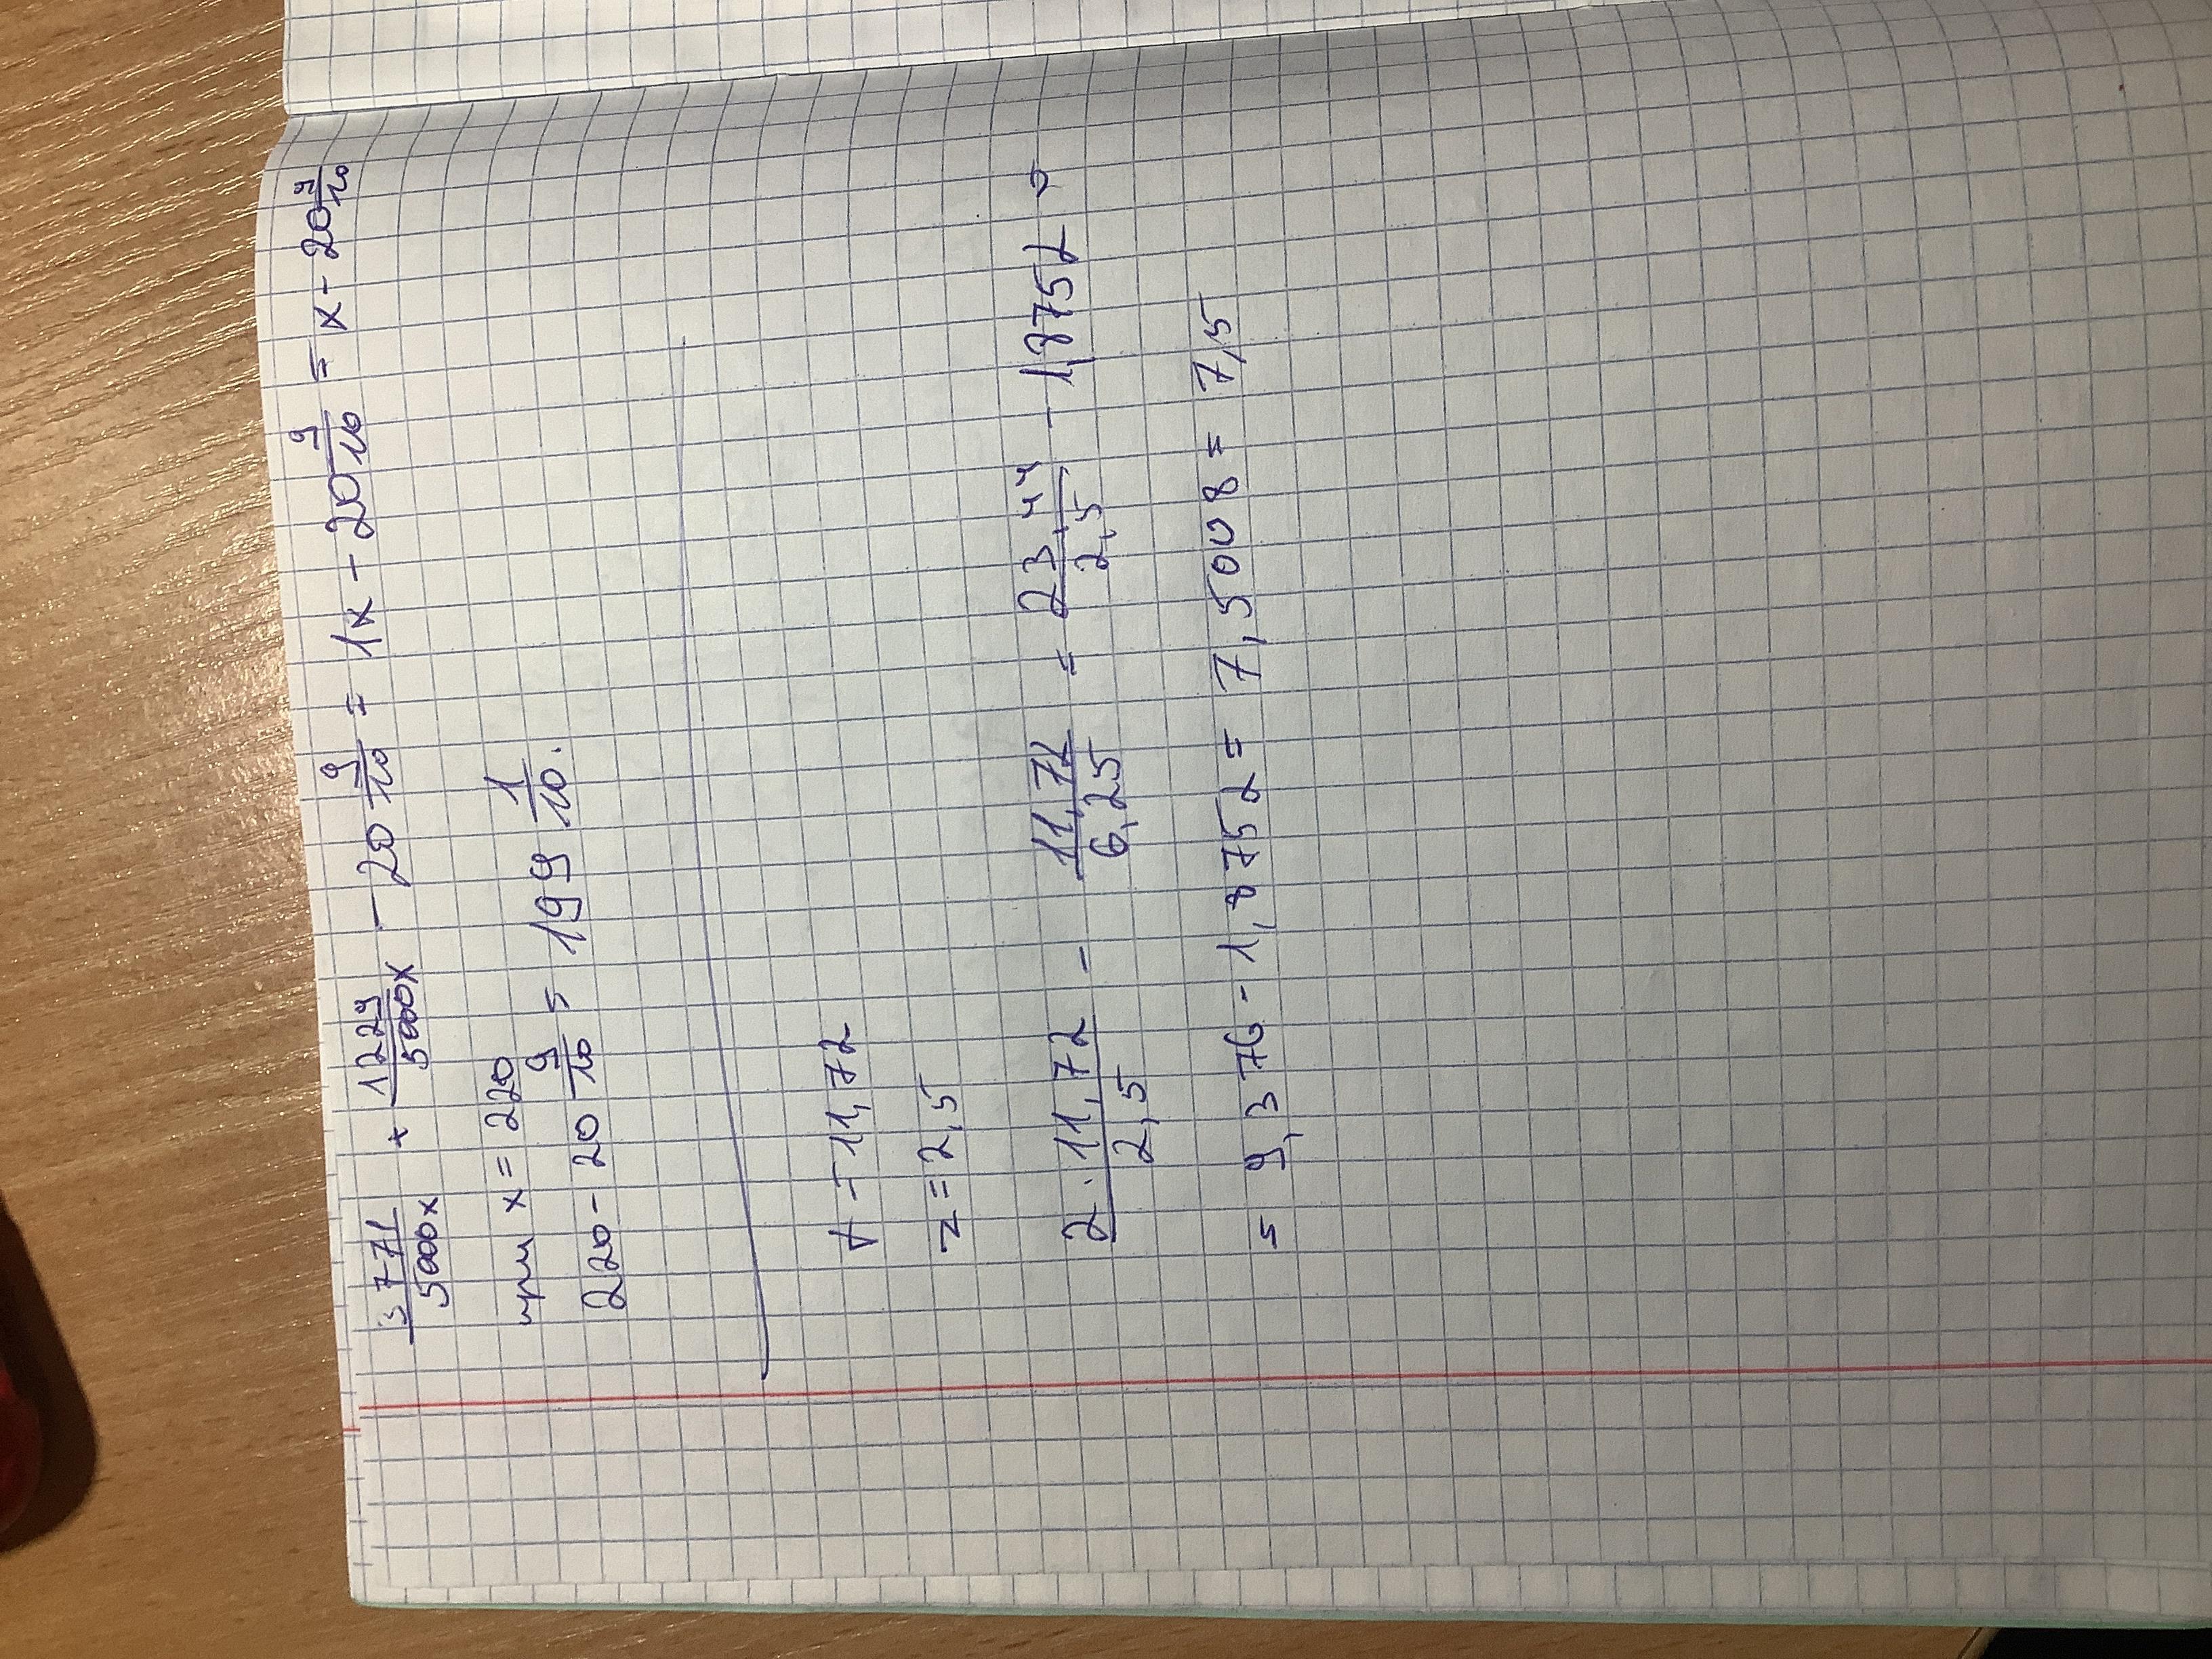 3771/5000x + 1229/5000x - 20 9/10 = 1x - 20 9/10 = x - 20 9/10
при x = 220
220 - 20 9/10 = 199 1/10.
t - 11,72
z = 2,5
2·11,72/2,5 - 11,72/6,25 = 23,44/2,5 - 1,8752 =
= 9,376 - 1,8752 = 7,5008 = 7,5